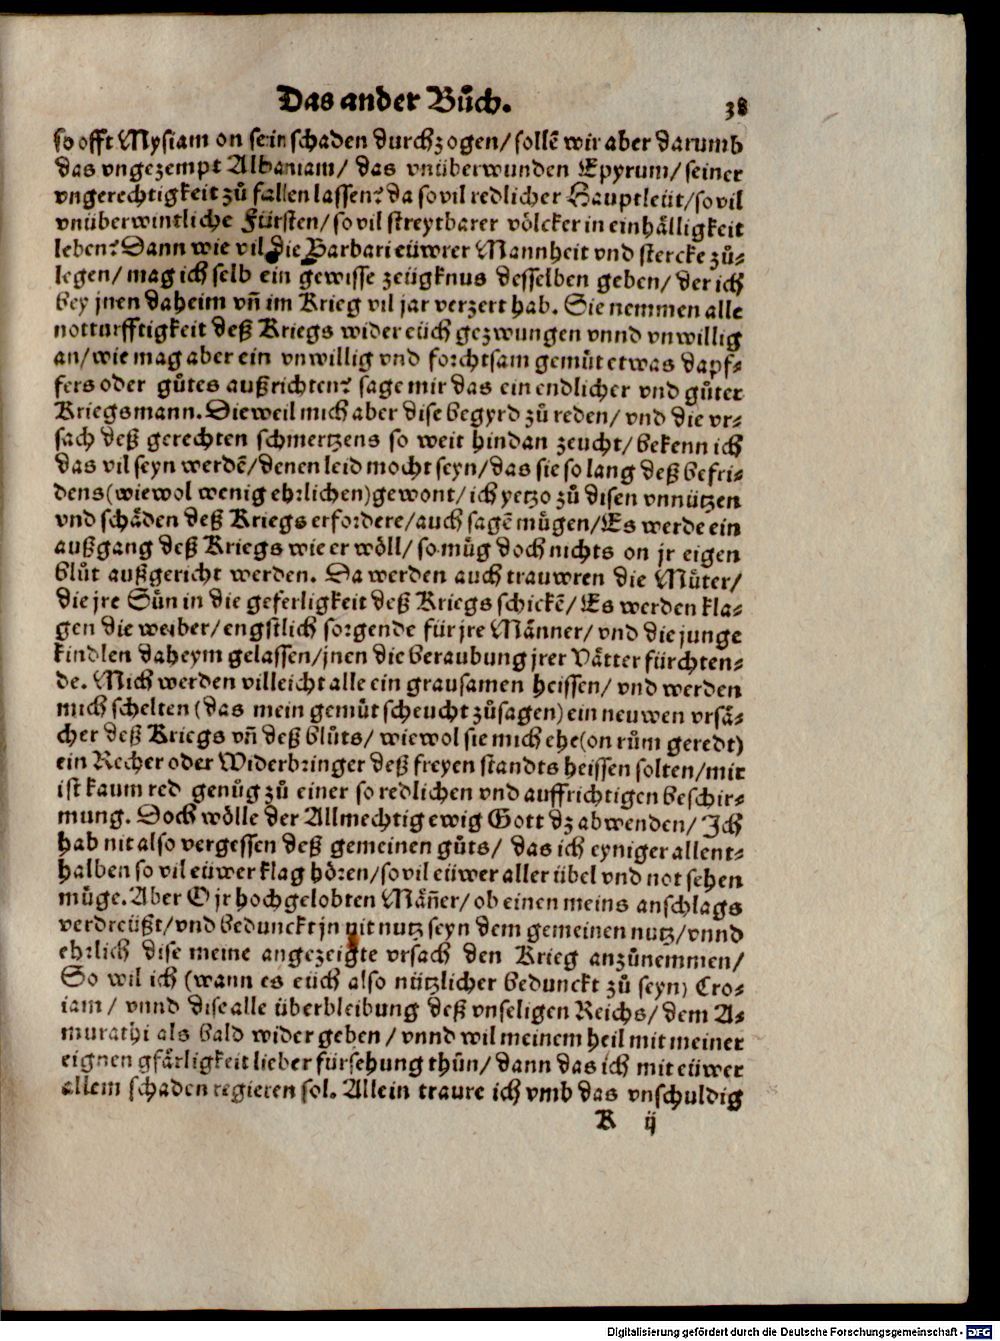 Das ander Bůch. 38
so offt Mysiam on sein schaden durchzogen/ sollē wir aber darumb
das vngezempt Albaniam/ das vnüberwunden Epyrum/ seiner
vngerechtigkeit zů fallen lassen? da so vil redlicher Hauptleüt/ so vil
vnüberwintliche Fürsten/ so vil streytbarer völcker in einhälligkeit
leben? Dann wie vil die Barbari eüwrer Mannheit vnd stercke zů-
legen/ mag ich selb ein gewisse zeügknus desselben geben/ der ich
bey jnen daheim vñ im Krieg vil jar verzert hab. Sie nemmen alle
notturfftigkeit deß Kriegs wider eüch gezwungen vnnd vnwillig
an/ wie mag aber ein vnwillig vnd forchtsam gemůt etwas dapf-
fers oder gůtes außrichten? sage mir das ein endlicher vnd gůter
Kriegsmann. Dieweil mich aber dise begyrd zů reden/ vnd die vr-
sach deß gerechten schmertzens so weit hindan zeucht/ bekenn ich
das vil seyn werdē/ denen leid mocht seyn/ das sie so lang deß befri-
dens (wiewol wenig ehrlichen) gewont/ ich yetzo zů disen vnnützen
vnd schäden deß Kriegs erfordere/ auch sagē mügen/ Es werde ein
außgang deß Kriegs wie er wöll/ so müg doch nichts on jr eigen
blůt außgericht werden. Da werden auch trauwren die Můter/
die jre Sün in die geferligkeit deß Kriegs schickē/ Es werden kla-
gen die weiber/ engstlich sorgende für jre Männer/ vnd die junge
kindlen daheym gelassen/ jnen die beraubung jrer Vätter fürchten-
de. Mich werden villeicht alle ein grausamen heissen/ vnd werden
mich schelten (das mein gemůt scheucht zůsagen) ein neuwen vrsä-
cher deß Kriegs vñ deß blůts/ wiewol sie mich ehe (on rům geredt)
ein Recher oder Widerbringer deß freyen standts heissen solten/ mir
ist kaum red genůg zů einer so redlichen vnd auffrichtigen beschir-
mung. Doch wölle der Allmechtig ewig Gott dz abwenden/ Ich
hab nit also vergessen deß gemeinen gůts/ das ich eyniger allent-
halben so vil eüwer klag hören/ so vil eüwer aller übel vnd not sehen
müge. Aber O jr hochgelobten Mäñer/ ob einen meins anschlags
verdreüßt/ vnd beduncktjn nit nutz seyn dem gemeinen nutz/ vnnd
ehrlich dise meine angezeigte vrsach den Krieg anzůnemmen/
So wil ich (wann es eüch also nützlicher bedunckt zů seyn) Cro-
iam/ vnnd dise alle überbleibung deß vnseligen Reichs/ dem A-
murathi als bald wider geben/ vnnd wil meinem heil mit meiner
eignen gfärligkeit lieber fürsehung thůn/ dann das ich mit eüwer
allem schaden regieren sol. Allein traure ich vmb das vnschuldig
K ij
Digitalisierung gefördert durch die Deutsche Forschungsgemeinschaft - DFG